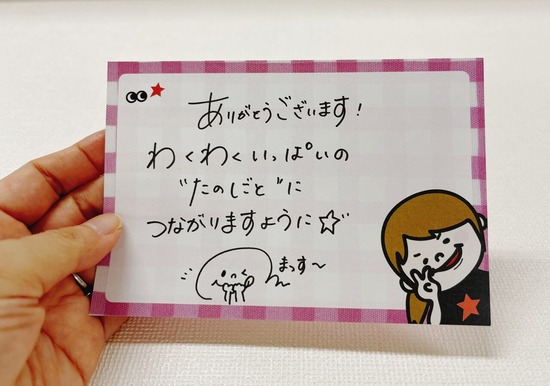 ありがとうございます!
わくわくいっぱいの
"たのしごと"に
つながりますように☆
まっす〜